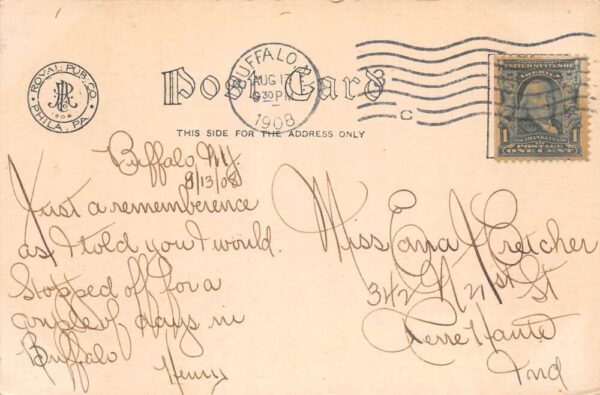 ROYAL PUB. CO.
PHILA. PA
Post Card
BUFFALO, N.Y.
AUG 13
9 30 PM
1908
C
THIS SIDE FOR THE ADDRESS ONLY
UNITED STATES OF
AMERICA
1 1
FRANKLIN
POSTAGE
ONE CENT
Buffalo NY.
8/13/08
Just a rememberence
as I told you I would.
Stopped off for a
couple of days in
Buffalo
Henry
Miss
342 N 21st St
Terre Haute
Ind